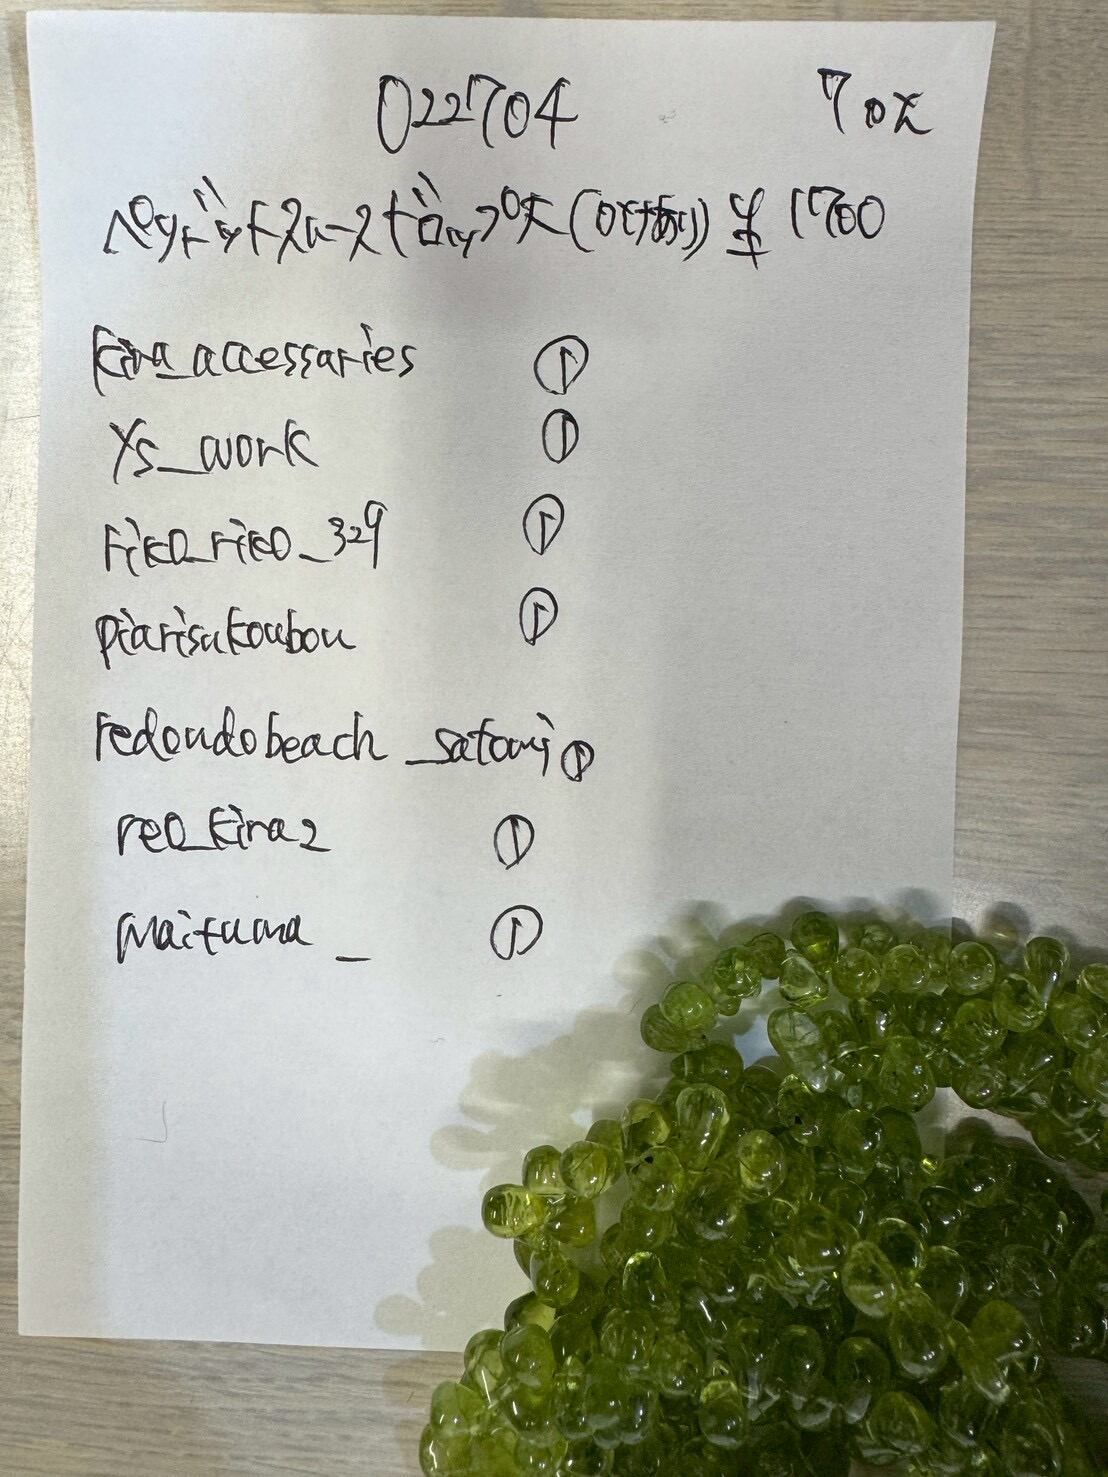 022704 70え
ペリドットスムースドロップ大(穴有り) ¥1700
kira_accessaries ①
ys_work ①
riko_riko_329 ①
piarisukoubou ①
redondobeach_satomi ①
reo_kira2 ①
maituma_ ①